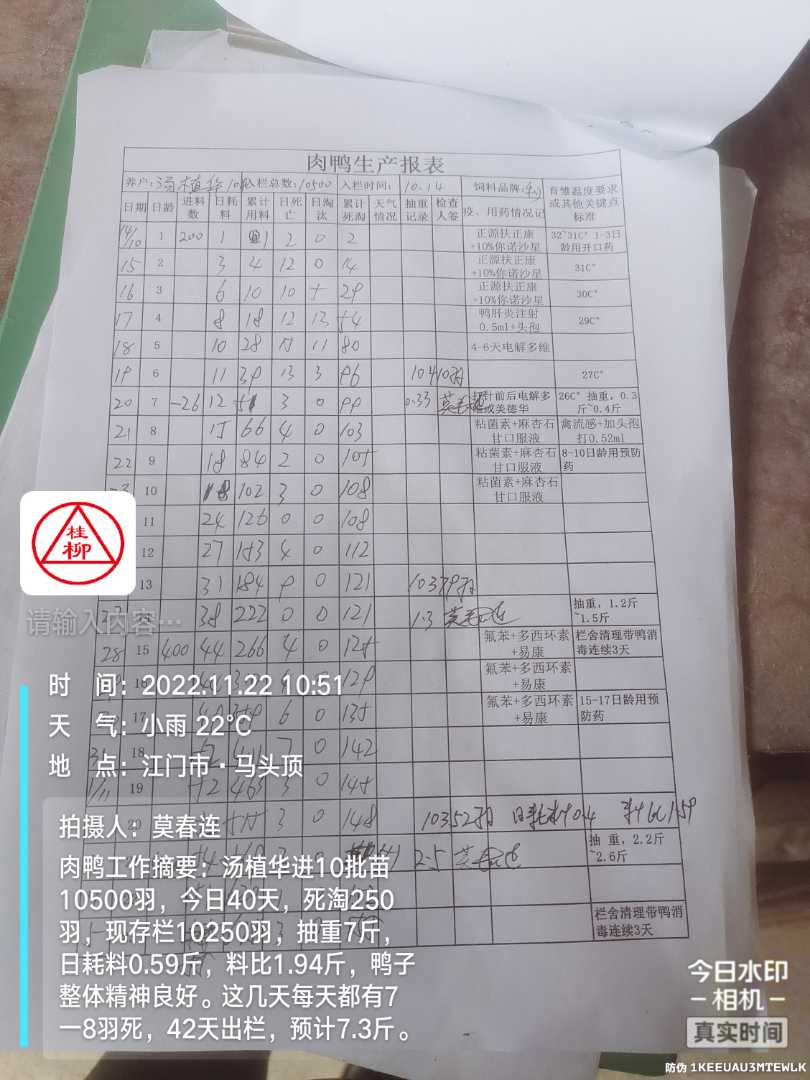 肉鸭生产报表
养户: 汤植华10批 入栏总数: 10500 入栏时间: 10.14 饲料品牌: 育雏温度要求或其他关键点标准
日期 日龄 进料数 日耗料 累计用料 日死亡 日淘汰 累计死淘 天气情况 抽重记录 检查人签 疫、用药情况记
14/10 1 200 1 1 2 0 2 正源扶正康+10%你诺沙星 32~31C° 1-3日龄用开口药
15 2 3 4 12 0 14 正源扶正康+10%你诺沙星 31C°
16 3 6 10 10 5 29 正源扶正康+10%你诺沙星 30C°
17 4 8 18 12 13 54 鸭肝炎注射0.5ml+头孢 29C°
18 5 10 28 15 11 80 4-6天电解多维
19 6 11 39 13 3 96 10410羽 27C°
20 7 -26 12 51 3 0 99 0.33 莫春连 打针前后电解多维或美德华 26C° 抽重,0.3斤~0.4斤
21 8 15 66 4 0 103 粘菌素+麻杏石甘口服液 禽流感+加头孢打0.52ml
22 9 18 84 2 0 105 粘菌素+麻杏石甘口服液 8-10日龄用预防药
10 18 102 3 0 108 粘菌素+麻杏石甘口服液
11 24 126 0 0 108
12 27 153 4 0 112
13 31 184 9 0 121 10379羽
38 222 0 0 121 1.3 莫春连 抽重,1.2斤~1.5斤
28 15 400 44 266 4 0 125 氟苯+多西环素+易康 栏舍清理带鸭消毒连续3天
0 129 氟苯+多西环素+易康
17 6 0 135 氟苯+多西环素+易康 15-17日龄用预防药
18 7 0 142
1/11 19 52 463 3 0 145
3 0 148 10352羽 日耗料0.4 料比1.59
3 2.5 莫春连 抽 重,2.2斤~2.6斤
栏舍清理带鸭消毒连续3天
桂柳
请输入内容…
时 间: 2022.11.22 10:51
天 气: 小雨 22℃
地 点: 江门市·马头顶
拍摄人: 莫春连
肉鸭工作摘要: 汤植华进10批苗
10500羽,今日40天,死淘250
羽,现存栏10250羽,抽重7斤,
日耗料0.59斤,料比1.94斤,鸭子
整体精神良好。这几天每天都有7
一8羽死,42天出栏,预计7.3斤。
今日水印
相机
真实时间
防伪 1KEEUAU3MTEWLK